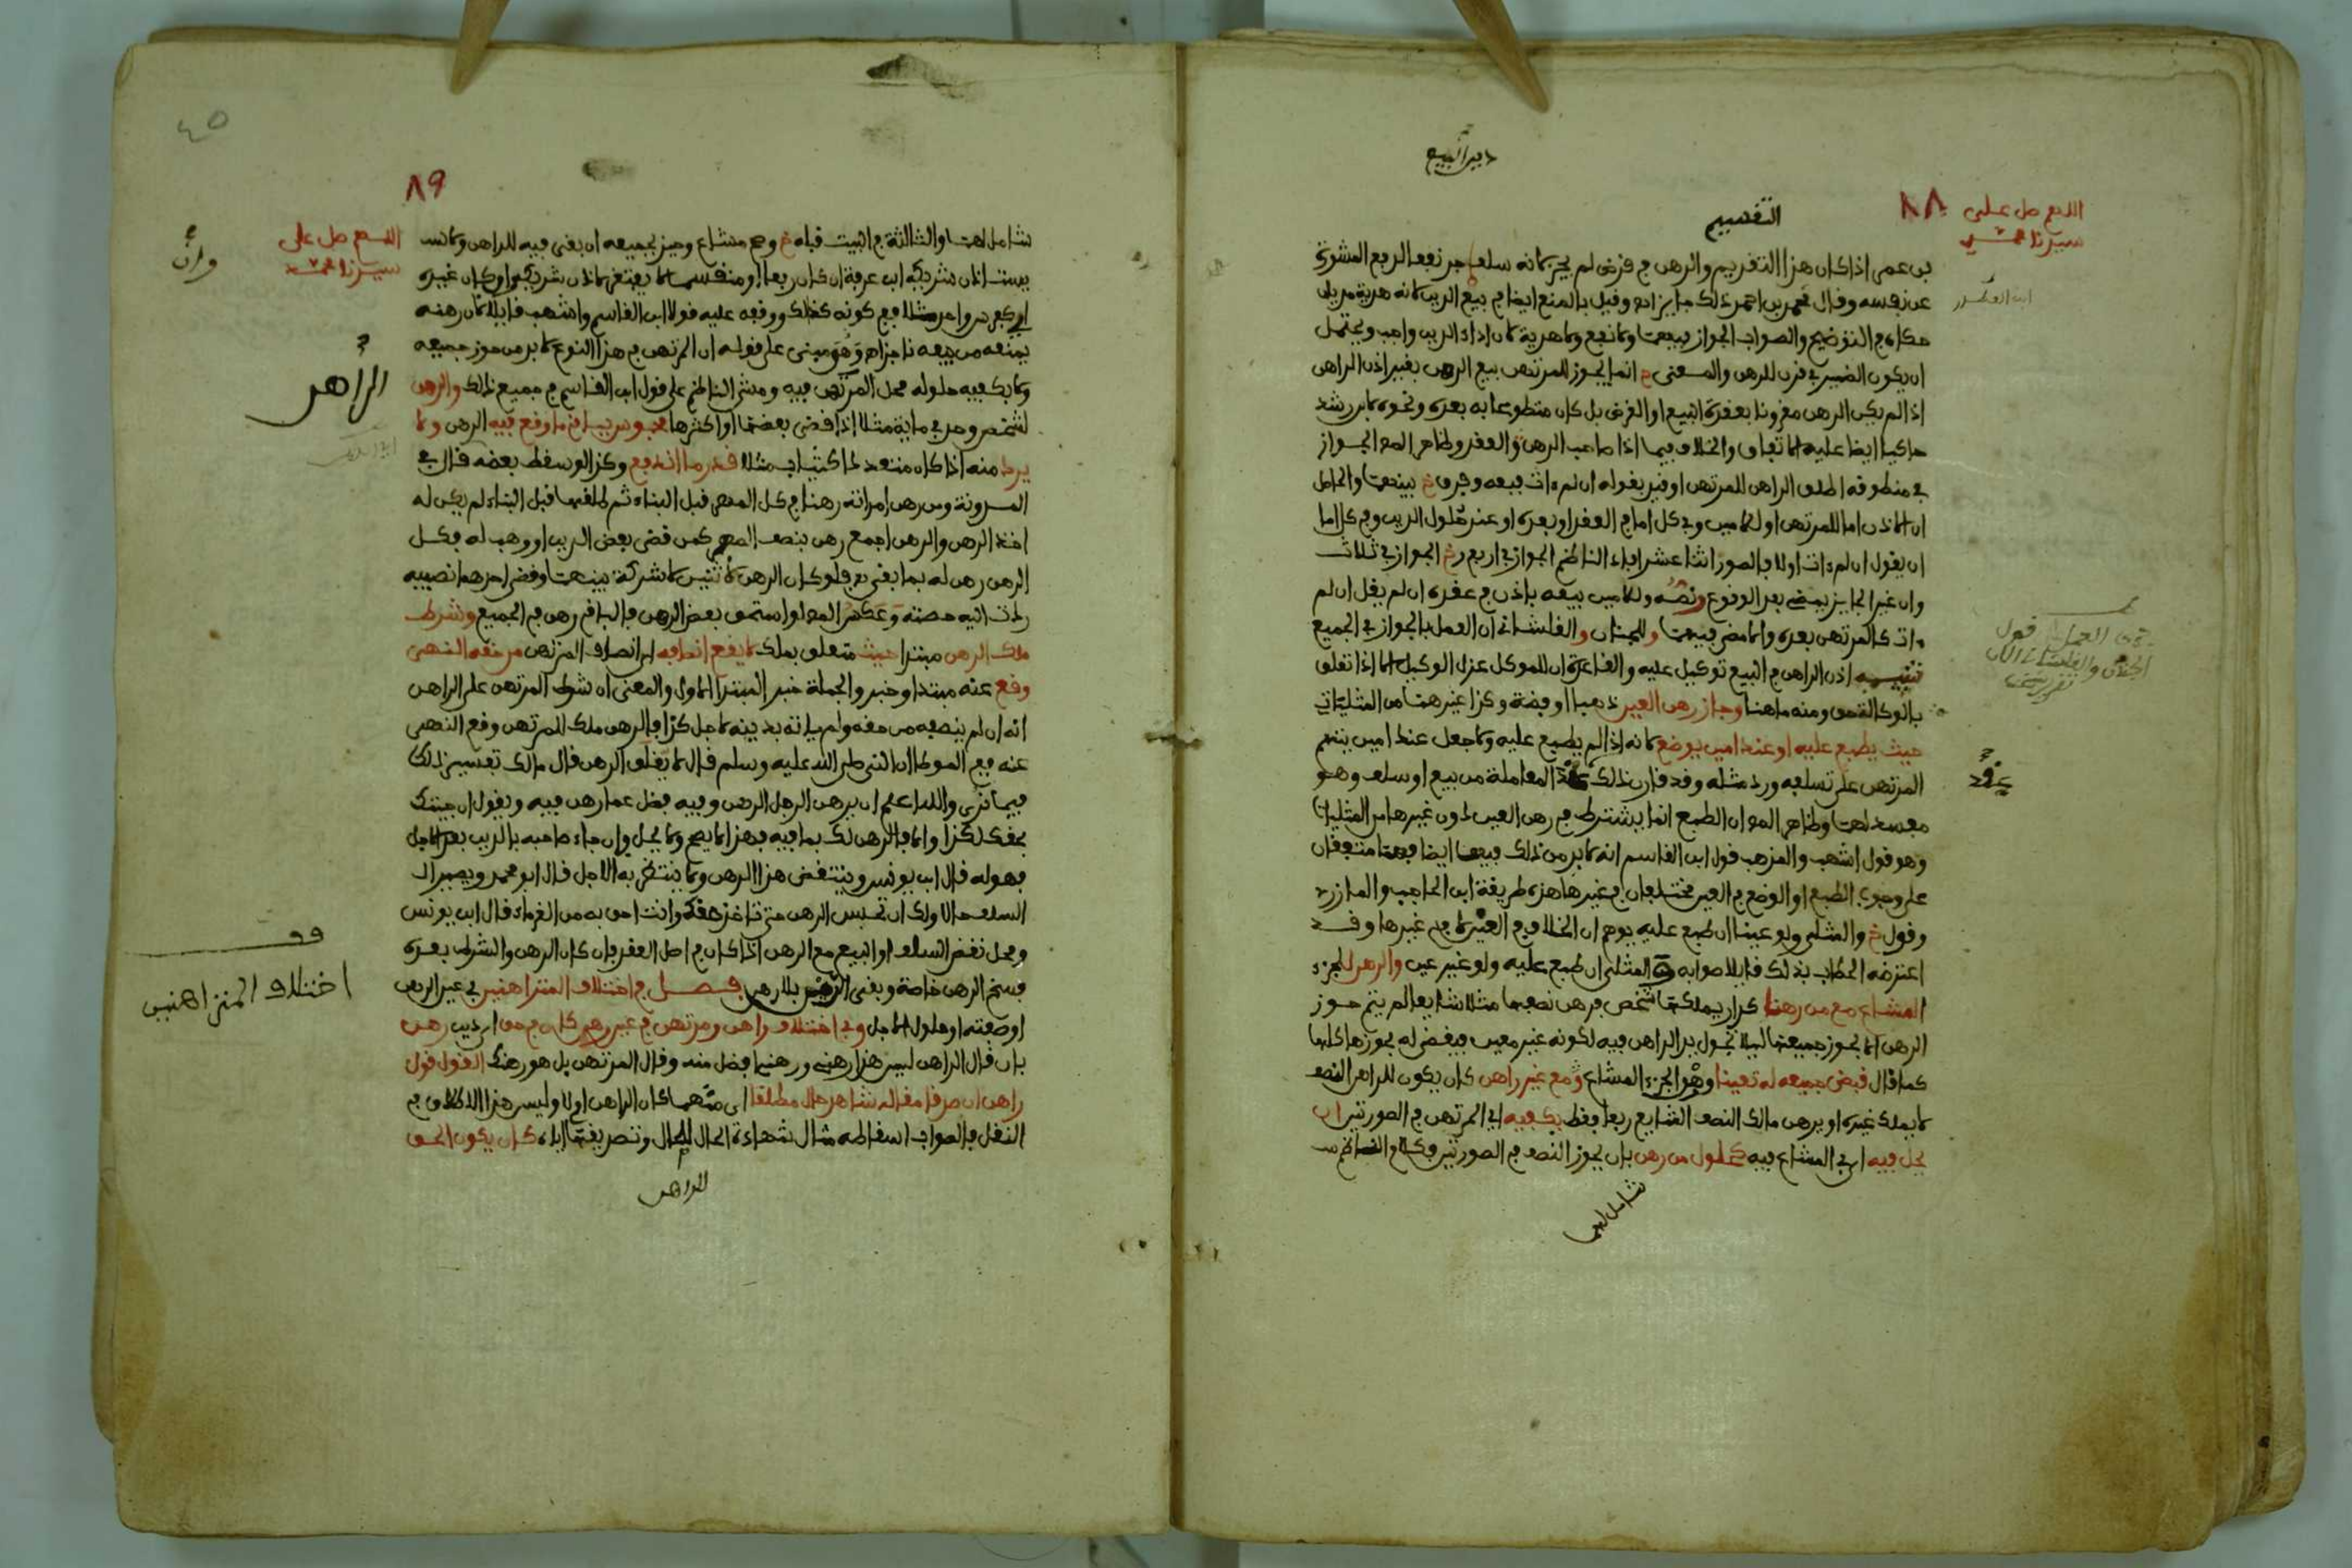 دبر البيع
التقصيم
٨٨
اللهم صل على
سيدنا محمد
بن عمر اذا كان هذا التقديم والرهن في قرض لم يجز لانه سلف جر نفعا الربع المشوري
عن نفسه وقال محمد بن احمد ذلك جايز اهـ وقيل بالمنع ايضا في بيع الدين لانه هدية مديان
حكاه في التوضيح والصواب الجواز بيعت ولا نفع ولا هدية لان اداء الدين واجب ويحتمل
ان يكون الضمير في قرن للرهن والمعنى انما يجوز للمرتهن بيع الرهن بغير اذن الراهن
اذا لم يكن الرهن مقرونا بعقدة البيع او القرض بل كان متطوعا به بعده ونحوه لابن رشد
حاكيا ايضا عليه الاتفاق والخلاف فيما اذا صاحب الرهن العقد وظاهر المص الجواز
في منطوقه اطلق الراهن للمرتهن او قيد بقوله ان لم ءات ففيه وفرق خ بينهما والحاصل
ان الاذن اما للمرتهن او للامين وفي كل اما في العقد او بعده او عند حلول الدين وفي كل اما
ان يقول ان لم ءات اولا فالصور اثنا عشر افاد الناظم الجواز في اربع خ الجواز في ثلاث
وان غير الجايز يمضي بعد الوقوع ونصه وللامين بيعه باذن في عقده ان لم يقل ان لم
ءات كالمرتهن بعده والا مضى فيهما وللجنان والفلشاني ان العمل بالجواز في الجميع
تنبيه اذن الراهن في البيع توكيل عليه والقاعدة ان للموكل عزل الوكيل الا اذا تعلق
بالوكالة حق ومنه ما هنا وجاز رهن العين ذهبا او فضة وكذا غيرهما من المثليات
حيث يطبع عليه او عند امين يوضع لانه اذا لم يطبع عليه ولا جعل عند امين يتهم
المرتهن على تسلفه ورد مثله وقد قارن ذلك عقد المعاملة من بيع او سلف وهو
مفسد لهما وظاهر المص ان الطبع انما يشترط في رهن العين دون غيرها من المثليات
وهو قول اشهب والمذهب قول ابن القاسم انه لا بد من ذلك فيهما ايضا فهما متفقان
على وجوب الطبع او الوضع في العين مختلفان في غيرها هذه طريقة ابن الحاجب والمازري
وقول خ والمثلي ولو عينا ان طبع عليه يوهم ان الخلاف في العين لا في غيرها وقد
اعترضه الحطاب بذلك قايلا صوابه والمثلي ان طبع عليه ولو غير عين والرهن للجزء
المشاع مع من رهنا كدار يملكها شخص فرهن نصفها مثلا شايعا لم يتم حوز
الرهن الا بحوز جميعها ليلا تجول يد الراهن فيه لكونه غير معين فيقضى له بحوزها كلها
كما قال قبض جميعه له تعينا وهو الجزء المشاع ومع غير راهن كان يكون للراهن النصف
لا يملك غيره او يرهن مالك النصف الشايع ربعا فقط يكفيه اي المرتهن في الصورتين ان
يحل فيه اي في المشاع فيه كحلول من رهن بان يحوز النصف في الصورتين وكلام الناظم
شامل لهما
عقد
٤٥
٨٩
اللهم صل على
سيدنا محمد
شامل لهما والثالثة في البيت قبله خ وصح مشاع وحيز بجميعه ان بقي فيه للراهن ولا
يستاذن شريكه ابن عرفة ان كان ربعا او منقسما لا يفتقر لاذن شريكه وان كان غيره
اي كعبد واحد مثلا ففي كونه كذلك ووقفه عليه قولا ابن القاسم واشهب قايلا لان رهنه
يمنعه من بيعه ناجزا اهـ وهو مبني على قوله ان المرتهن في هذا النوع لا بد من حوز جميعه
ولا يكفيه حلوله محل المرتهن فيه ومشى الناظم على قول ابن القاسم في جميع ذلك والرهن
لشخص وحد في ماية مثلا اذا قضى بعضها او اكثرها محبوس بباقي ما وقع فيه الرهن ولا
يرد منه اذا كان متعددا كثياب مثلا قدر ما اندفع وكذا لو سقط بعضه قال في
المدونة ومن رهن امراته رهنا في كل المهر قبل البناء ثم طلقها قبل البناء لم يكن له
اخذ الرهن والرهن اجمع رهن بنصف المهر كمن قضى بعض الدين او وهب له فكل
الرهن رهن له بما بقي فلو كان الرهن لاثنين لا شركة بينهما وقضى احدهما نصيبه
ردت اليه حصته وعكس المص لو استحق بعض الرهن فالباقي رهن في الجميع وشرط
ملك الرهن مبتدا حيث متعلق بملك لا يقع انصافه اي انصاف المرتهن من حقه النهي
وقع عنه مبتدا وخبر والجملة خبر المبتدا الاول والمعنى ان شرط المرتهن على الراهن
انه ان لم ينصفه من حقه ولم ياته بدينه لاجل كذا فالرهن ملك للمرتهن وقع النهي
عنه ففي الموطا ان النبي صلى الله عليه وسلم قال لا يغلق الرهن قال مالك تفسير ذلك
فيما نرى والله اعلم ان يرهن الرجل الرهن وفيه فضل عما رهن فيه ويقول ان جيتك
بحقك لكذا والا فالرهن لك بما فيه فهذا لا يصح ولا يحل وان جاء صاحبه بالدين بعد الاجل
فهو له قال ابن يونس وينتقض هذا الرهن ولا ينتظر به الاجل قال ابو محمد ويصير الـ
السلف حالا ولك ان تحبس الرهن حتى تاخذ حقك وانت احق به من الغرماء قال ابن يونس
ومحل نقض السلف او البيع مع الرهن اذا كان في اصل العقد فان كان الرهن والشرط بعده
فسخ الرهن خاصة وبقي الدين بلا رهن فصل في اختلاف المتراهنين في عين الرهن
او صفته او حلول الاجل وفي اختلاف راهن ومرتهن في عين رهن كان في حق اي دين رهن
بان قال الراهن ليس هذا رهني ورهنها افضل منه وقال المرتهن بل هو رهنك القول قول
راهن ان صدقا مقاله شاهد حال مطلقا اي متهما كان الراهن ام لا وليس هذا الاطلاق في
النقل فالصواب اسقاطه مثال شهادة الحال للحال وتصريفها اياه كان يكون الحق
للراهن
وان
الراهن
قف
اختلاف المتراهنين